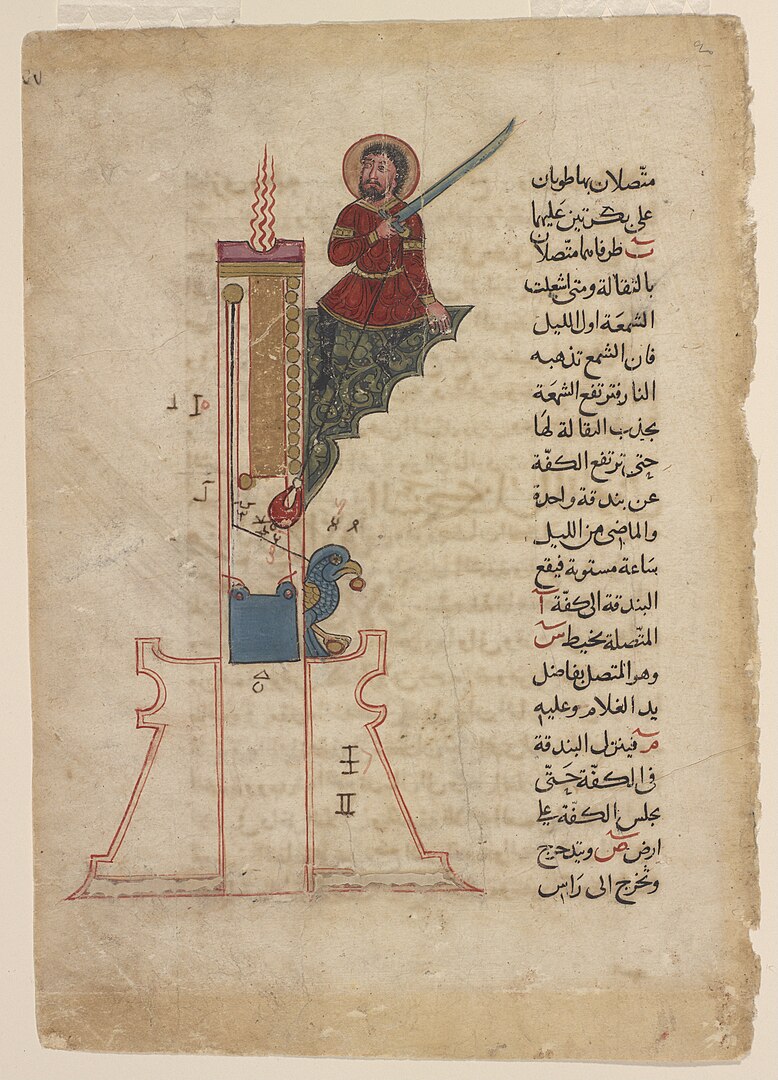 متّصلان بهما طوبان
على بكرتين عليهما
ت طرفاهما متّصلان
بالثقالة ومتى اشعلت
الشمعة اول الليل
فان الشمع تذهبه
النار فترتفع الشمعة
بجذب الثقالة لها
حتى ترتفع الكفّة
عن بندقة واحدة
والماضى من الليل
ساعة مستوية فيقع
البندقة الى كفّة آ
المتّصلة بخيط س
وهو المتصل بفاضل
يد الغلام وعليه
م فينزل البندقة
فى الكفّة حتّى
يجلس الكفّة على
ارض ص ويتدحرج
وتخرج الى راس